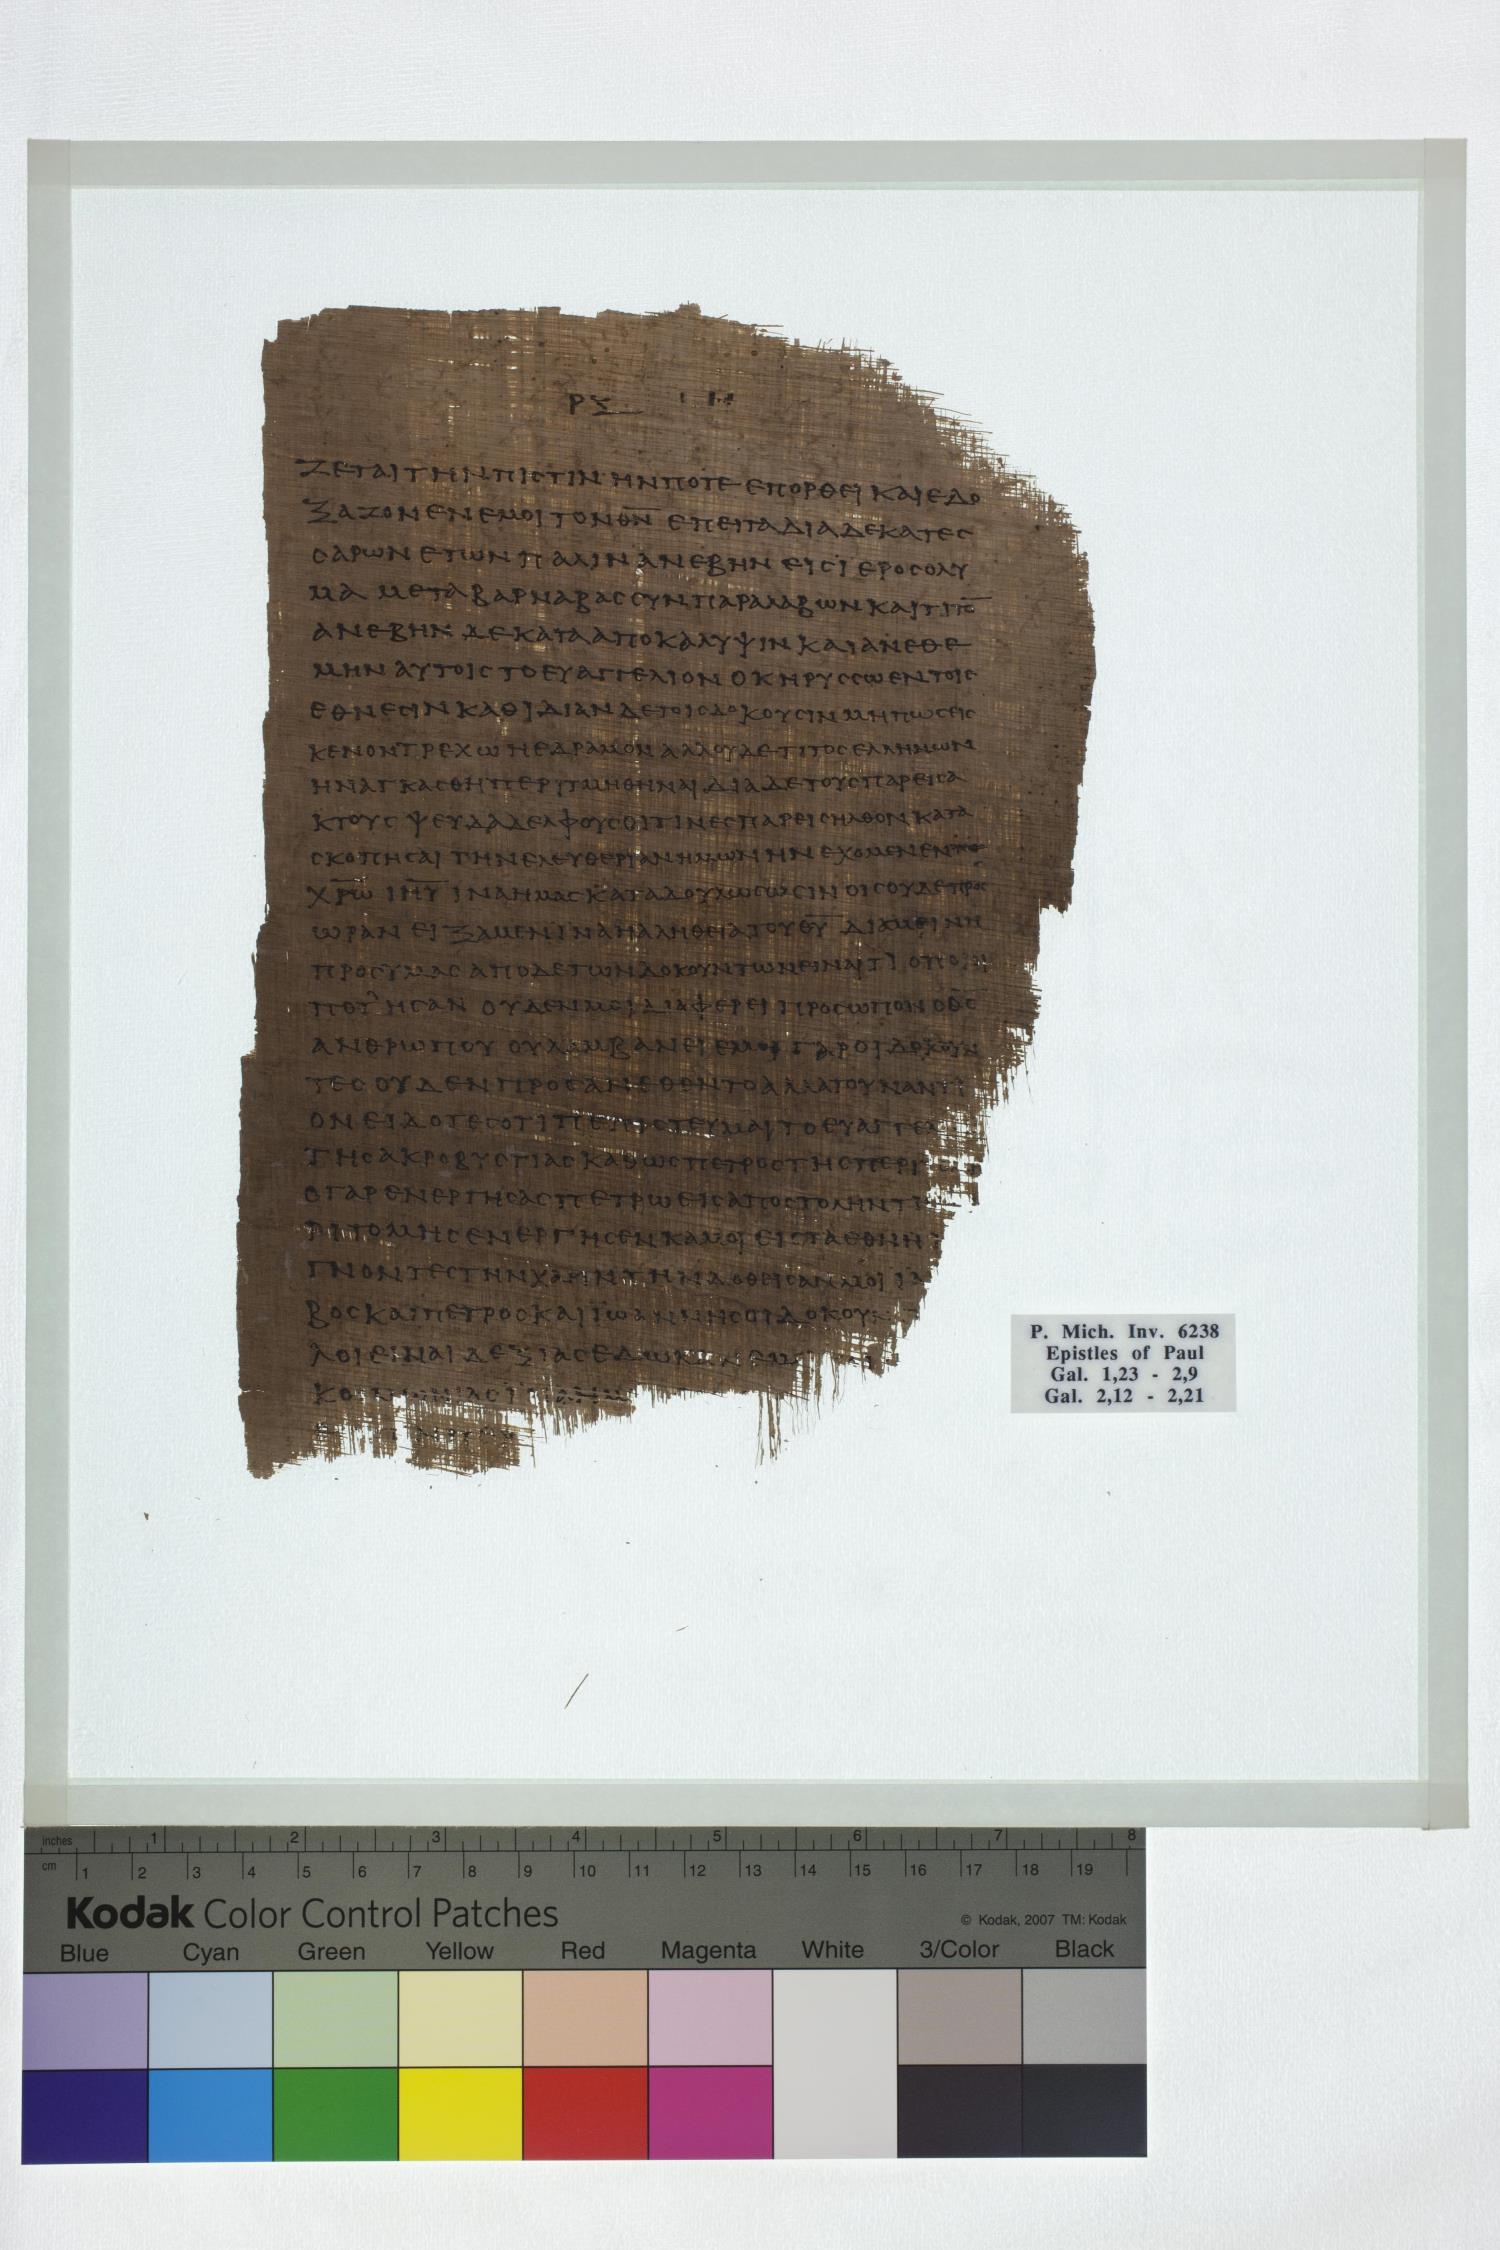 ΖΕΤΑΙ ΤΗΝ ΠΙCΤΙΝ ΗΝ ΠΟΤΕ ΕΠΟΡΘΕΙ ΚΑΙ ΕΔΟ
ΞΑΖΟΝ ΕΝ ΕΜΟΙ ΤΟΝ Θ̅Ν̅ ΕΠΕΙΤΑ ΔΙΑ ΔΕΚΑΤΕC
CΑΡΩΝ ΕΤΩΝ ΠΑΛΙΝ ΑΝΕΒΗΝ ΕΙC ΙΕΡΟCΟΛΥ
ΜΑ ΜΕΤΑ ΒΑΡΝΑΒΑC CΥΝΠΑΡΑΛΑΒΩΝ ΚΑΙ ΤΙΤΟ̅
ΑΝΕΒΗΝ ΔΕ ΚΑΤΑ ΑΠΟΚΑΛΥΨΙΝ ΚΑΙ ΑΝΕΘΕ
ΜΗΝ ΑΥΤΟΙC ΤΟ ΕΥΑΓΓΕΛΙΟΝ Ο ΚΗΡΥCCΩ ΕΝ ΤΟΙC
ΕΘΝΕCΙΝ ΚΑΘ ΙΔΙΑΝ ΔΕ ΤΟΙC ΔΟΚΟΥCΙΝ ΜΗ ΠΩC ΕΙC
ΚΕΝΟΝ ΤΡΕΧΩ Η ΕΔΡΑΜΟΝ ΑΛΛ ΟΥΔΕ ΤΙΤΟC ΕΛΛΗΝ ΩΝ
ΗΝΑΓΚΑCΘΗ ΠΕΡΙΤΜΗΘΗΝΑΙ ΔΙΑ ΔΕ ΤΟΥC ΠΑΡΕΙCΑ
ΚΤΟΥC ΨΕΥΔΑΔΕΛΦΟΥC ΟΙΤΙΝΕC ΠΑΡΕΙCΗΛΘΟΝ ΚΑΤΑ
CΚΟΠΗCΑΙ ΤΗΝ ΕΛΕΥΘΕΡΙΑΝ ΗΜΩΝ ΗΝ ΕΧΟΜΕΝ ΕΝ
Χ̅Ρ̅Ω̅ Ι̅Η̅Υ̅ ΙΝΑ ΗΜΑC ΚΑΤΑΔΟΥΛΩCΩCΙΝ ΟΙC ΟΥΔΕ ΠΡΟC
ΩΡΑΝ ΕΙΞΑΜΕΝ ΙΝΑ Η ΑΛΗΘΕΙΑ ΤΟΥ Θ̅Υ̅ ΔΙΑΜΕΙΝΗ
ΠΡΟC ΥΜΑC ΑΠΟ ΔΕ ΤΩΝ ΔΟΚΟΥΝΤΩΝ ΕΙΝΑΙ ΤΙ ΟΠΟΙΟΙ
ΠΟΤ ΗCΑΝ ΟΥΔΕΝ ΜΟΙ ΔΙΑΦΕΡΕΙ ΠΡΟCΩΠΟΝ Ο Θ̅C̅
ΑΝΘΡΩΠΟΥ ΟΥ ΛΑΜΒΑΝΕΙ ΕΜΟΙ ΓΑΡ ΟΙ ΔΟΚΟΥΝ
ΤΕC ΟΥΔΕΝ ΠΡΟCΑΝΕΘΕΝΤΟ ΑΛΛΑ ΤΟΥΝΑΝΤΙ
ΟΝ ΕΙΔΟΤΕC ΟΤΙ ΠΕΠΙCΤΕΥΜΑΙ ΤΟ ΕΥΑΓΓΕΛ
ΤΗC ΑΚΡΟΒΥCΤΙΑC ΚΑΘΩC ΠΕΤΡΟC ΤΗC ΠΕΡΙ
Ο ΓΑΡ ΕΝΕΡΓΗCΑC ΠΕΤΡΩ ΕΙC ΑΠΟCΤΟΛΗΝ ΤΗ
ΡΙΤΟΜΗC ΕΝΕΡΓΗCΕΝ ΚΑΜΟΙ ΕΙC ΤΑ ΕΘΝΗ
ΓΝΟΝΤΕC ΤΗΝ ΧΑΡΙΝ ΤΗΝ ΔΟΘΕΙCΑΝ ΜΟΙ ΙΑ
ΒΟC ΚΑΙ ΠΕΤΡΟC ΚΑΙ ΙΩΑΝΝΗC ΟΙ ΔΟΚΟΥΝ
ΛΟΙ ΕΙΝΑΙ ΔΕΞΙΑC ΕΔΩΚΑΝ ΕΜ
ΚΟΙΝΩΝΙΑC ΙΝΑ ΗΜ
P. Mich. Inv. 6238
Epistles of Paul
Gal. 1,23 - 2,9
Gal. 2,12 - 2,21
inches 1 2 3 4 5 6 7 8
cm 1 2 3 4 5 6 7 8 9 10 11 12 13 14 15 16 17 18 19
Kodak Color Control Patches
© Kodak, 2007 TM: Kodak
Blue Cyan Green Yellow Red Magenta White 3/Color Black